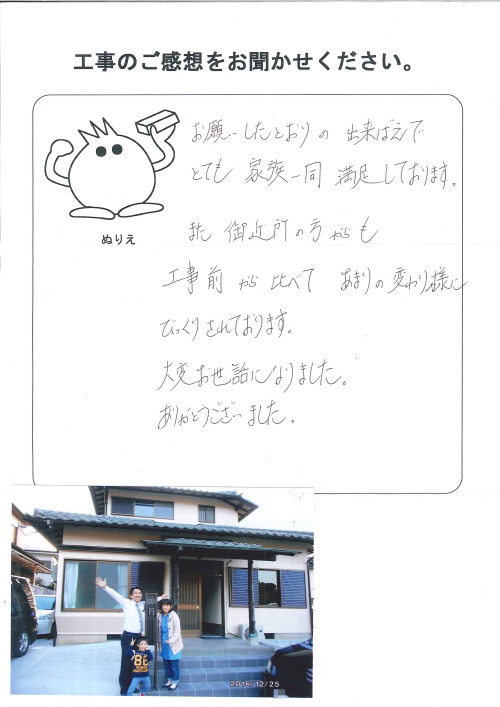 工事のご感想をお聞かせください。
お願いしたとおりの 出来ばえで
とても 家族一同 満足しております。
ぬりえ
また 御近所の方からも
工事前 から 比べて あまりの変わり様に
びっくりされております。
大変お世話になりました。
ありがとうございました。
2016/12/25